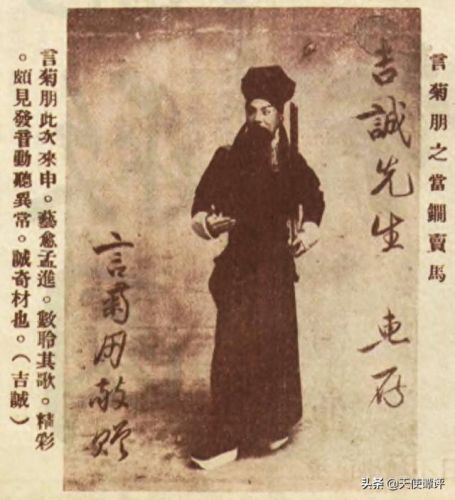 言菊朋之當鐧賣馬
吉誠先生 惠存
言菊朋敬贈
言菊朋此次來申。藝愈孟進。數聆其歌。精彩
。頗見發音動聽異常。誠奇材也。(吉誠)
头条 @天使